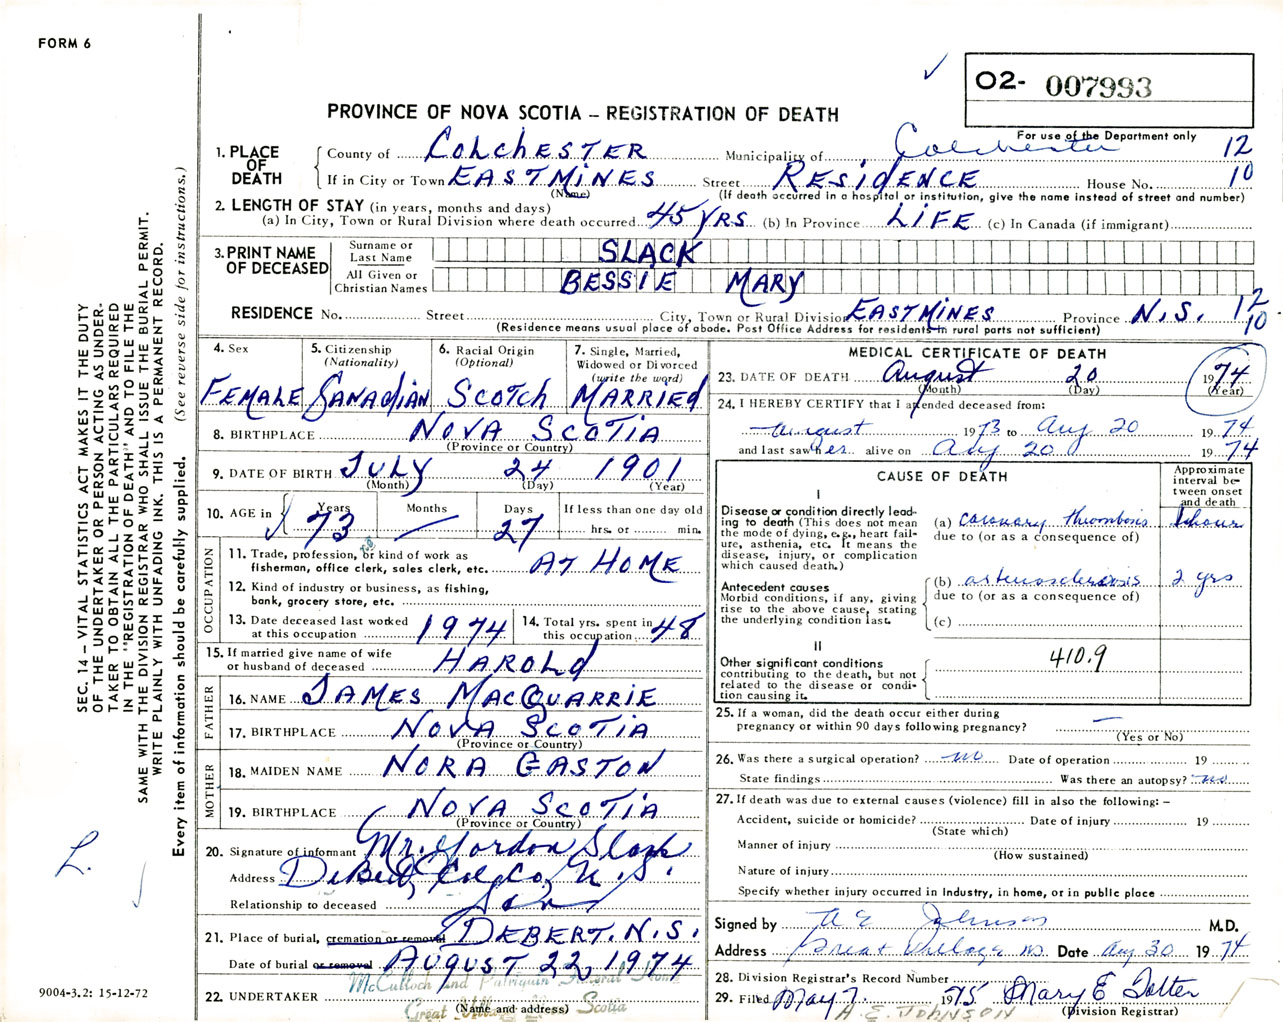 FORM 6
O2- 007993
PROVINCE OF NOVA SCOTIA – REGISTRATION OF DEATH
For use of the Department only
1. PLACE OF DEATH
County of COLCHESTER Municipality of Colchester 12
If in City or Town EAST MINES Street RESIDENCE House No. 10
(Name) (If death occurred in a hospital or institution, give the name instead of street and number)
2. LENGTH OF STAY (in years, months and days)
(a) In City, Town or Rural Division where death occurred 45 YRS (b) In Province LIFE (c) In Canada (if immigrant)
3. PRINT NAME OF DECEASED
Surname or Last Name SLACK
All Given or Christian Names BESSIE MARY
RESIDENCE No. Street City, Town or Rural Division EAST MINES Province N.S. 12 10
(Residence means usual place of abode. Post Office Address for residents in rural parts not sufficient)
4. Sex
FEMALE
5. Citizenship
(Nationality)
CANADIAN
6. Racial Origin
(Optional)
SCOTCH
7. Single, Married,
Widowed or Divorced
(write the word)
MARRIED
8. BIRTHPLACE NOVA SCOTIA
(Province or Country)
9. DATE OF BIRTH JULY 24 1901
(Month) (Day) (Year)
10. AGE in Years Months Days If less than one day old
73 — 27 hrs. or min.
OCCUPATION
11. Trade, profession, or kind of work as
fisherman, office clerk, sales clerk, etc. AT HOME
12. Kind of industry or business, as fishing,
bank, grocery store, etc.
13. Date deceased last worked
at this occupation 1974
14. Total yrs. spent in
this occupation 48
15. If married give name of wife
or husband of deceased HAROLD
FATHER
16. NAME JAMES MACQUARRIE
17. BIRTHPLACE NOVA SCOTIA
(Province or Country)
MOTHER
18. MAIDEN NAME NORA GASTON
19. BIRTHPLACE NOVA SCOTIA
(Province or Country)
20. Signature of informant Mr. Gordon Slack
Address Debert, Col. Co., N.S.
Relationship to deceased Son
21. Place of burial, cremation or removal DEBERT. N.S.
Date of burial or removal AUGUST 22, 1974
McCulloch and Patriquin Funeral Home
22. UNDERTAKER Great Scotia
(Name and address)
MEDICAL CERTIFICATE OF DEATH
23. DATE OF DEATH August 20 1974
(Month) (Day) (Year)
24. I HEREBY CERTIFY that I attended deceased from:
August 1973 to Aug 20 1974
and last saw her alive on Aug 20 1974
CAUSE OF DEATH
Approximate
interval be-
tween onset
and death
I
Disease or condition directly lead-
ing to death (This does not mean
the mode of dying, e.g., heart fail-
ure, asthenia, etc. It means the
disease, injury, or complication
which caused death.)
(a) coronary thrombosis 1 hour
due to (or as a consequence of)
Antecedent causes
Morbid conditions, if any, giving
rise to the above cause, stating
the underlying condition last.
(b) arteriosclerosis 2 yrs
due to (or as a consequence of)
(c)
II
Other significant conditions
contributing to the death, but not
related to the disease or condi-
tion causing it.
410.9
25. If a woman, did the death occur either during
pregnancy or within 90 days following pregnancy? —
(Yes or No)
26. Was there a surgical operation? no Date of operation 19
State findings Was there an autopsy? no
27. If death was due to external causes (violence) fill in also the following: –
Accident, suicide or homicide? Date of injury 19
(State which)
Manner of injury
(How sustained)
Nature of injury
Specify whether injury occurred in industry, in home, or in public place
Signed by Johnson M.D.
Address Great Village NS Date Aug 30 1974
28. Division Registrar's Record Number
29. Filed May 7, 1975 Mary E
A. E. JOHNSON (Division Registrar)
SEC. 14 – VITAL STATISTICS ACT MAKES IT THE DUTY
OF THE UNDERTAKER OR PERSON ACTING AS UNDER-
TAKER TO OBTAIN ALL THE PARTICULARS REQUIRED
IN THE "REGISTRATION OF DEATH" AND TO FILE THE
SAME WITH THE DIVISION REGISTRAR WHO SHALL ISSUE THE BURIAL PERMIT.
WRITE PLAINLY WITH UNFADING INK. THIS IS A PERMANENT RECORD.
Every item of information should be carefully supplied. (See reverse side for instructions.)
L.
9004-3.2: 15-12-72